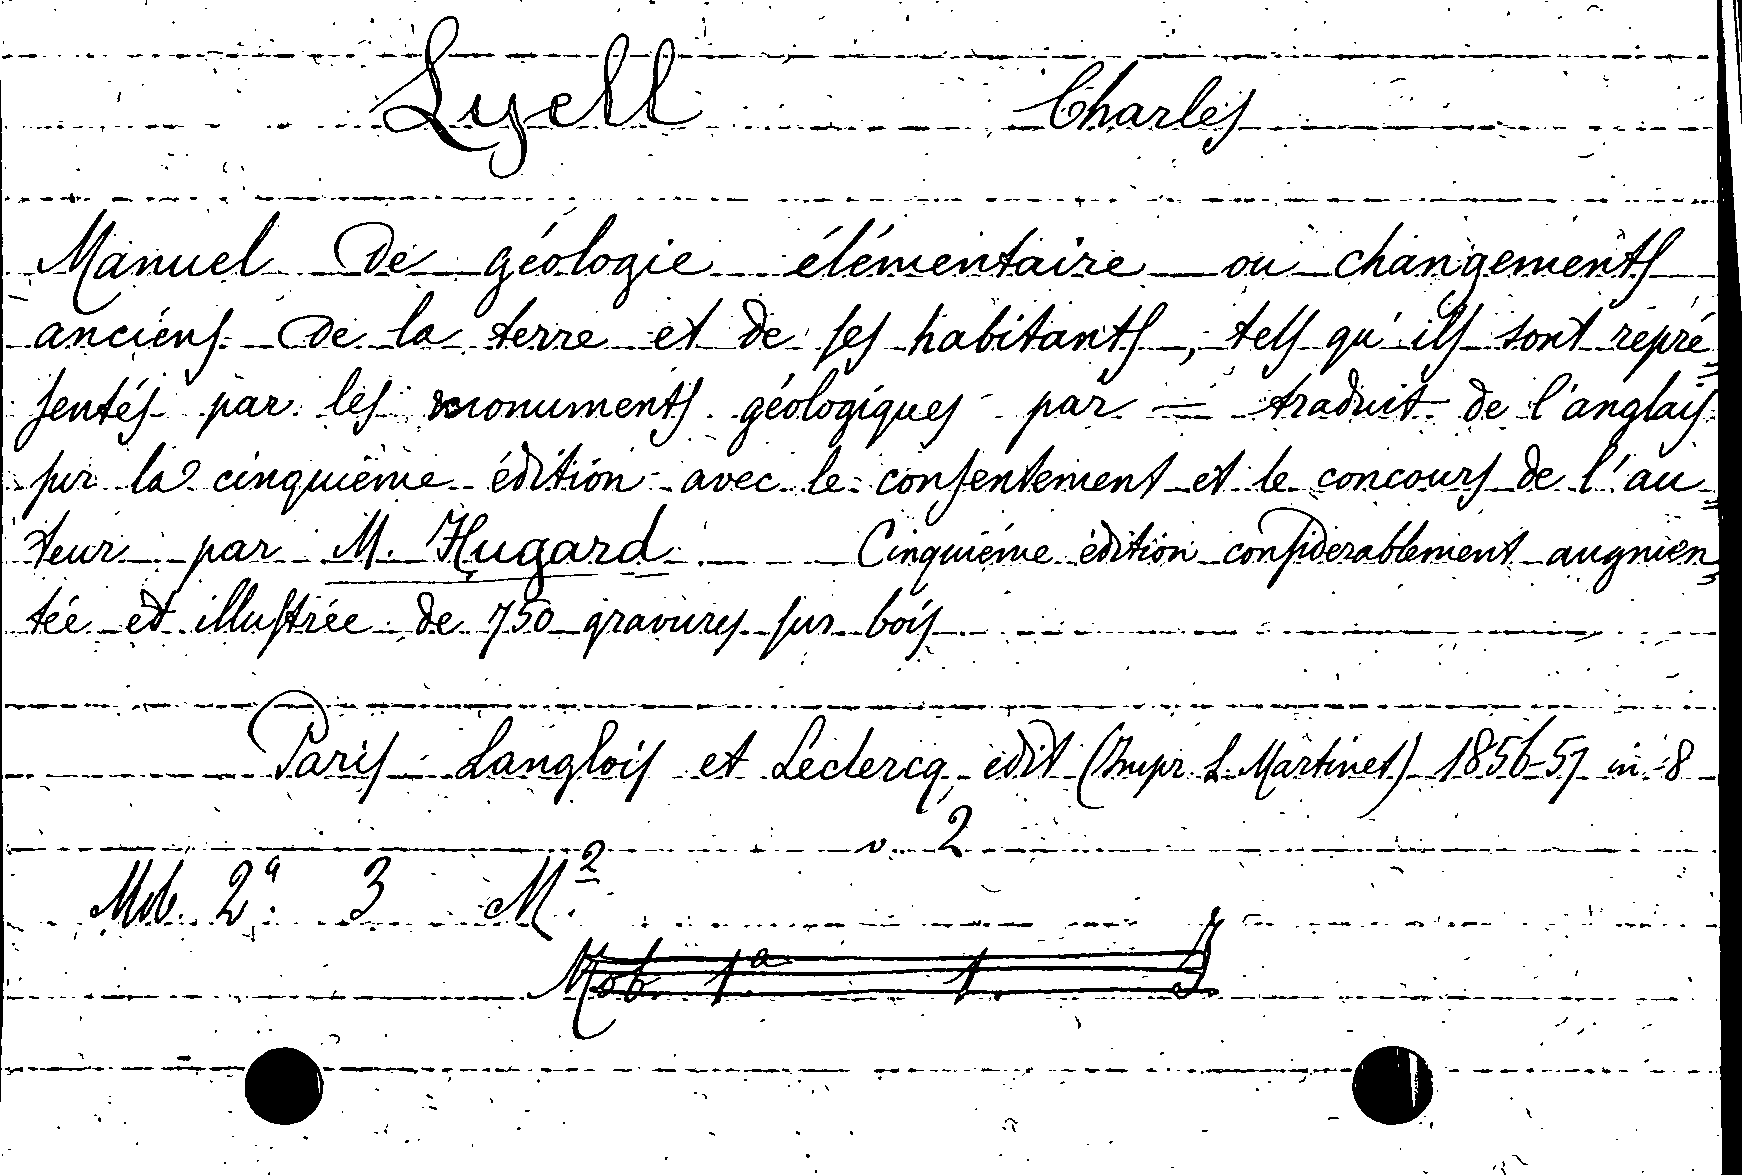 Lyell Charles
Manuel de géologie élémentaire ou changements
anciens de la terre et de ses habitants, tels qu'ils sont repré=
sentés par les monuments géologiques par — traduit de l'anglais
sur la cinquième édition avec le consentement et le concours de l'au=
teur par M. Hugard Cinquième édition considerablement augmen=
tée et illustrée de 750 gravures sur bois
Paris Langlois et Leclercq, edit (Impr. L. Martinet) 1856-57 in-8
v. 2
Mob. 2ª. 3 M.2
Mob. 1.a 1. J